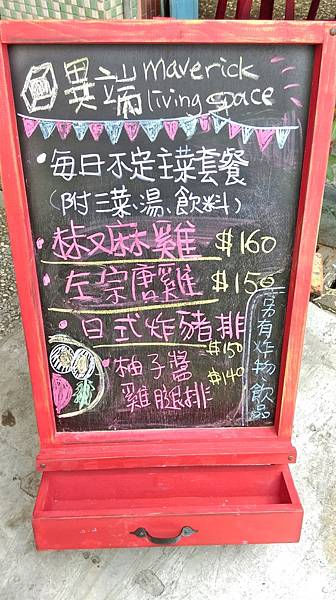 異端 maverick
living space
・每日不定主菜套餐
(附三菜、湯、飲料)
・椒麻雞 $160
・左宗唐雞 $150
・日式炸豬排
$150
・柚子醬 $140
雞腿排
另有炸物 飲品